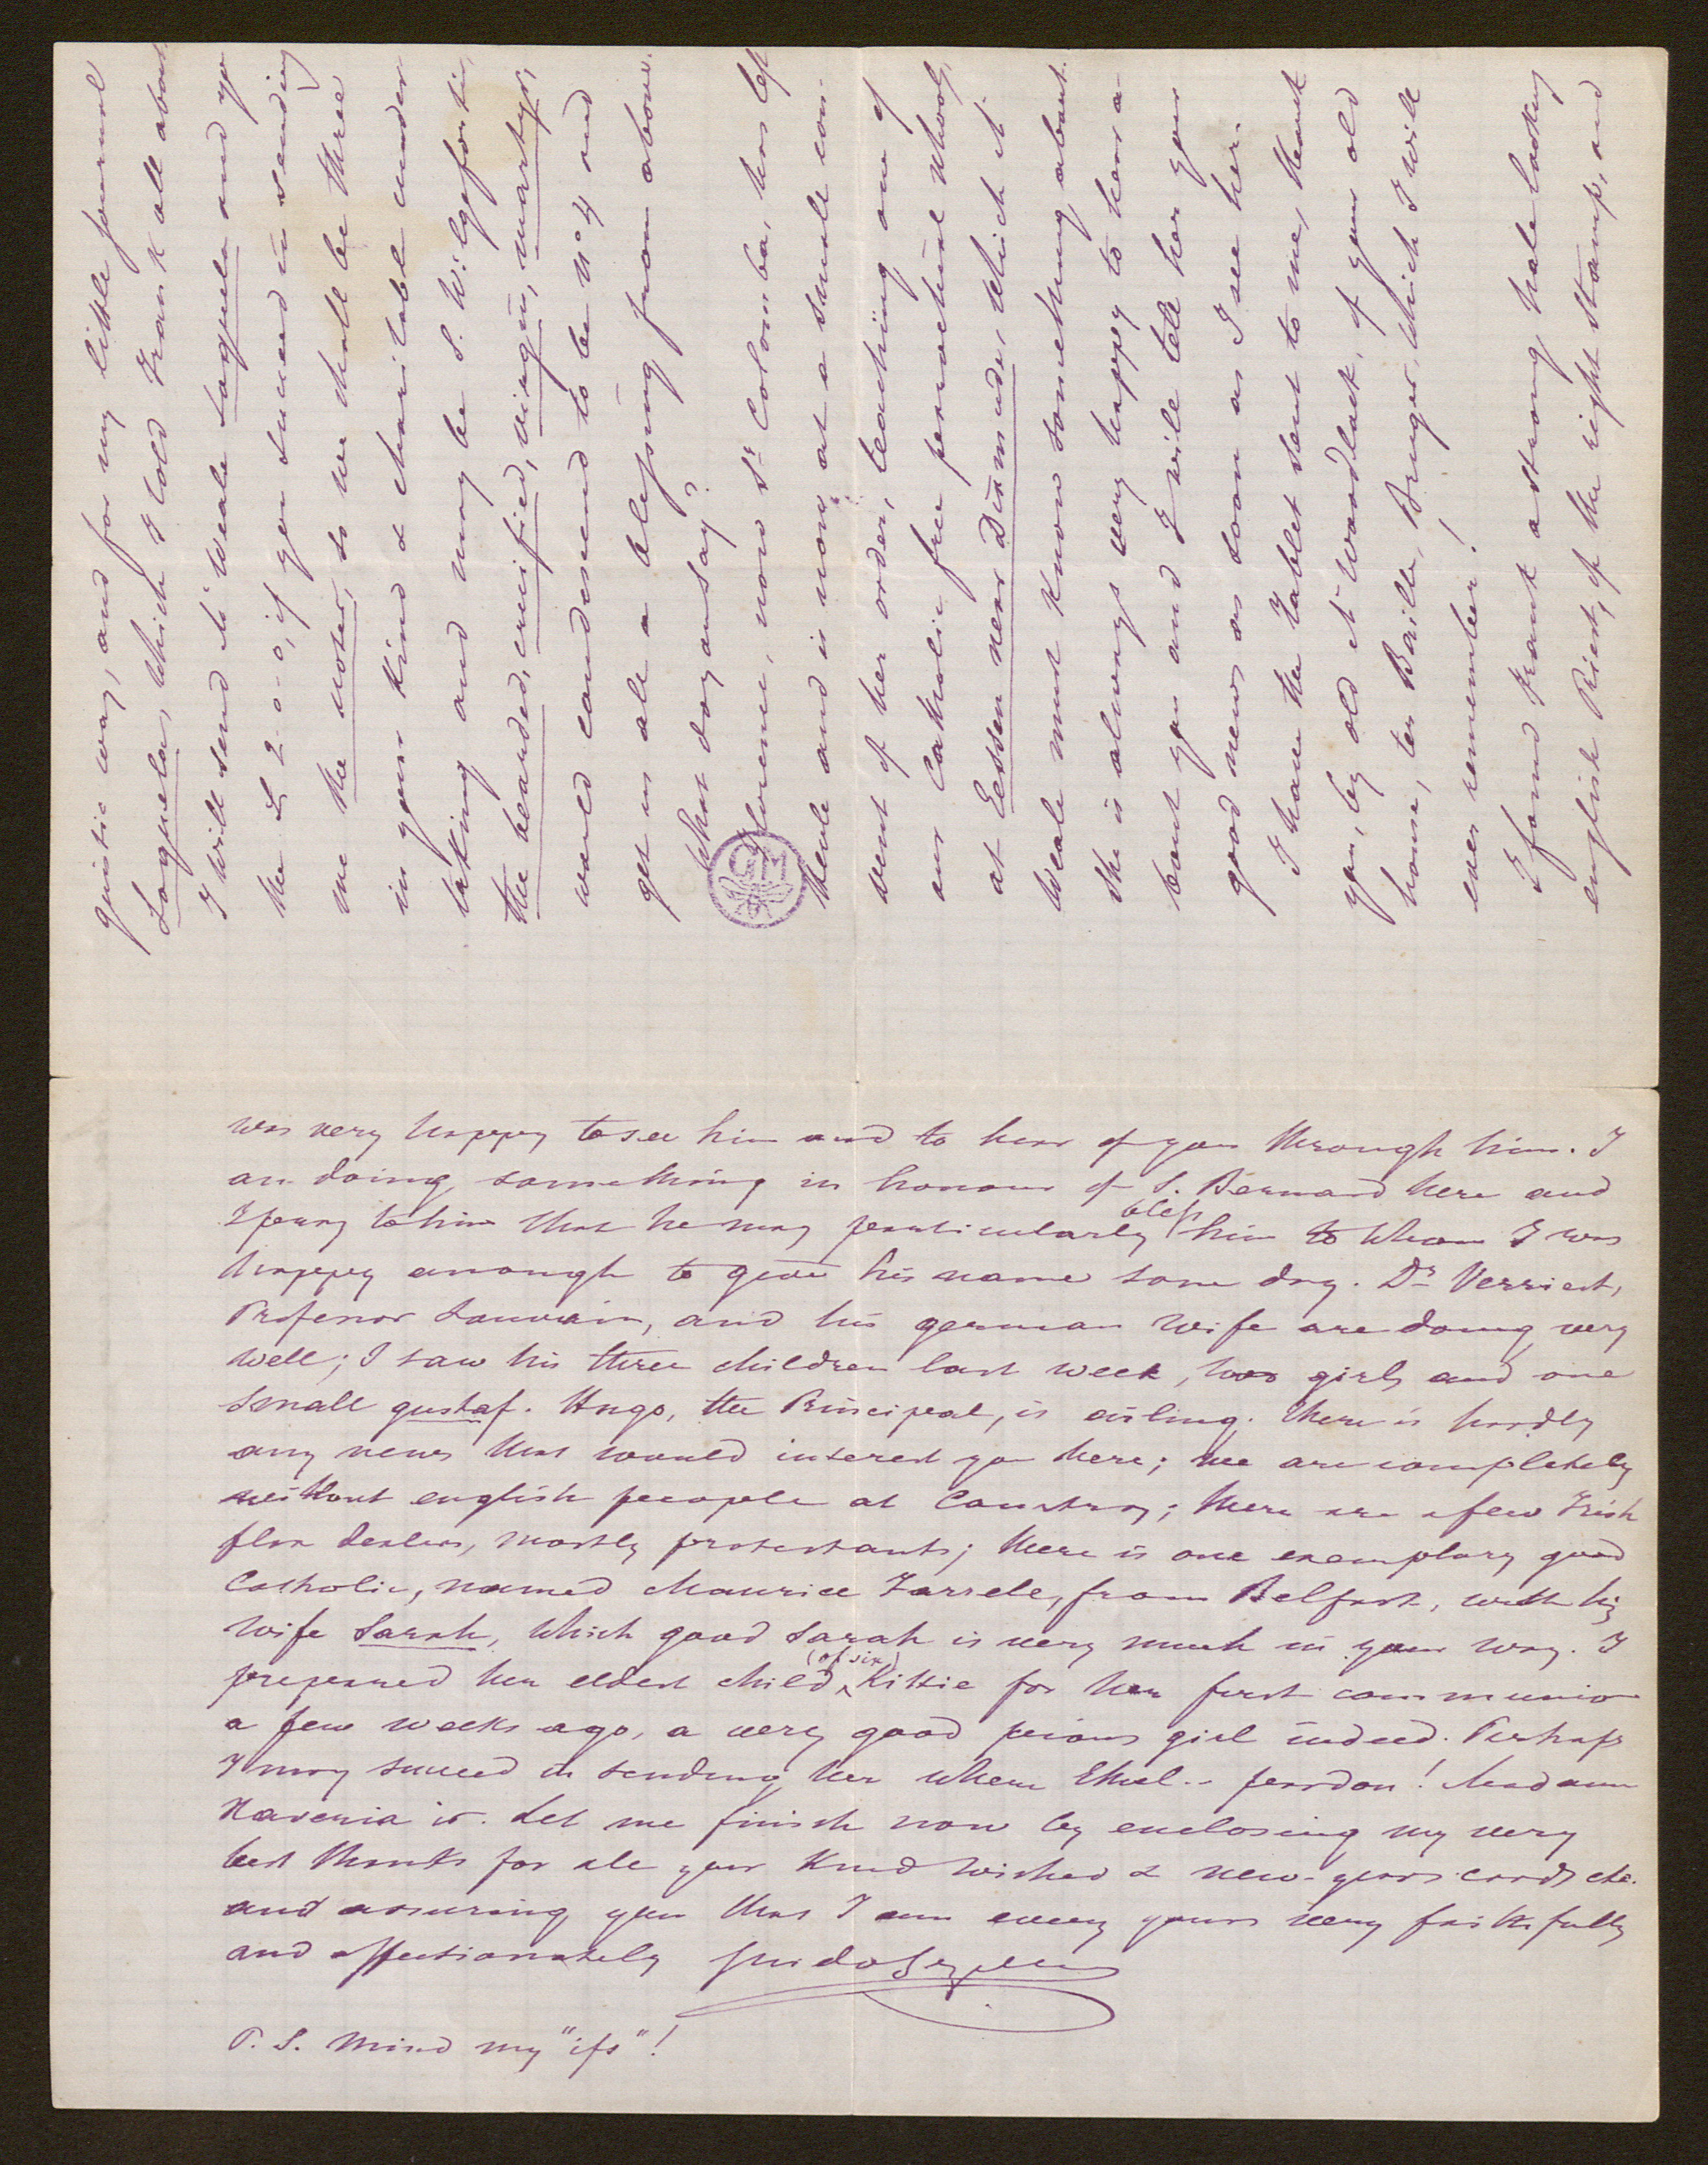 guistic way, and for my little journal
Loquela, which I told Frank all about.
I will send Mr Weale Loquela and yr
the £ 2-0-0, if you succeed in sending
me the notes, so we shall be three
in your kind & charitable under-
taking and may be S. Wilgefortis,
the bearded, crucified, virgin, martyr,
would condescend to be No 4 and
get us all a blessing from above.
What do you say?
Florence, now Sr Colomba, has left
Heule and is now at a small con-
vent of her order, teaching one of
our Catholic free parochial schools,
at Eessen near Dixmude, which Mr
Weale must know something about.
She is always very happy to hear a-
bout you and I will tell her your
good news as soon as I see her.
I have the Tablet sent to me, thank
you, by old Mr Woodlack, of your old
house, ter Baille, Bruges, which I will
ever remember!
I found Frank a strong hale looking
english Priest, of the right stamp, and
was very happy to see him and to hear of you through him. I
am doing something in honour of S. Bernard here and
I pray to him that he may particularly bless him to whom I was
happy enough to give his name some day. Dr Verriest,
Professor Louvain, and his german wife are doing very
well; I saw his three children last week, two girls and one
small gustaf. Hugo, the Principal, is ailing. There is hardly
any news that would interest you here; we are completely
without english people at Courtray; there are a few Irish
flax dealers, mostly protestants; there is one exemplary good
Catholic, named Maurice Farrell, from Belfast, with his
wife Sarah, which good Sarah is very much in your way. I
prepared her eldest child (of six) Kittie for her first communion
a few weeks ago, a very good pious girl indeed. Perhaps
I may succeed in sending her where Ethel.. pardon! Madam
Xaveria is. Let me finish now by enclosing my very
best thanks for all your kind wishes & new-years cards etc.
and assuring you that I am every yours very faithfully
and affectionately Guido Gezelle
P. S. Mind my "ifs"!
GM